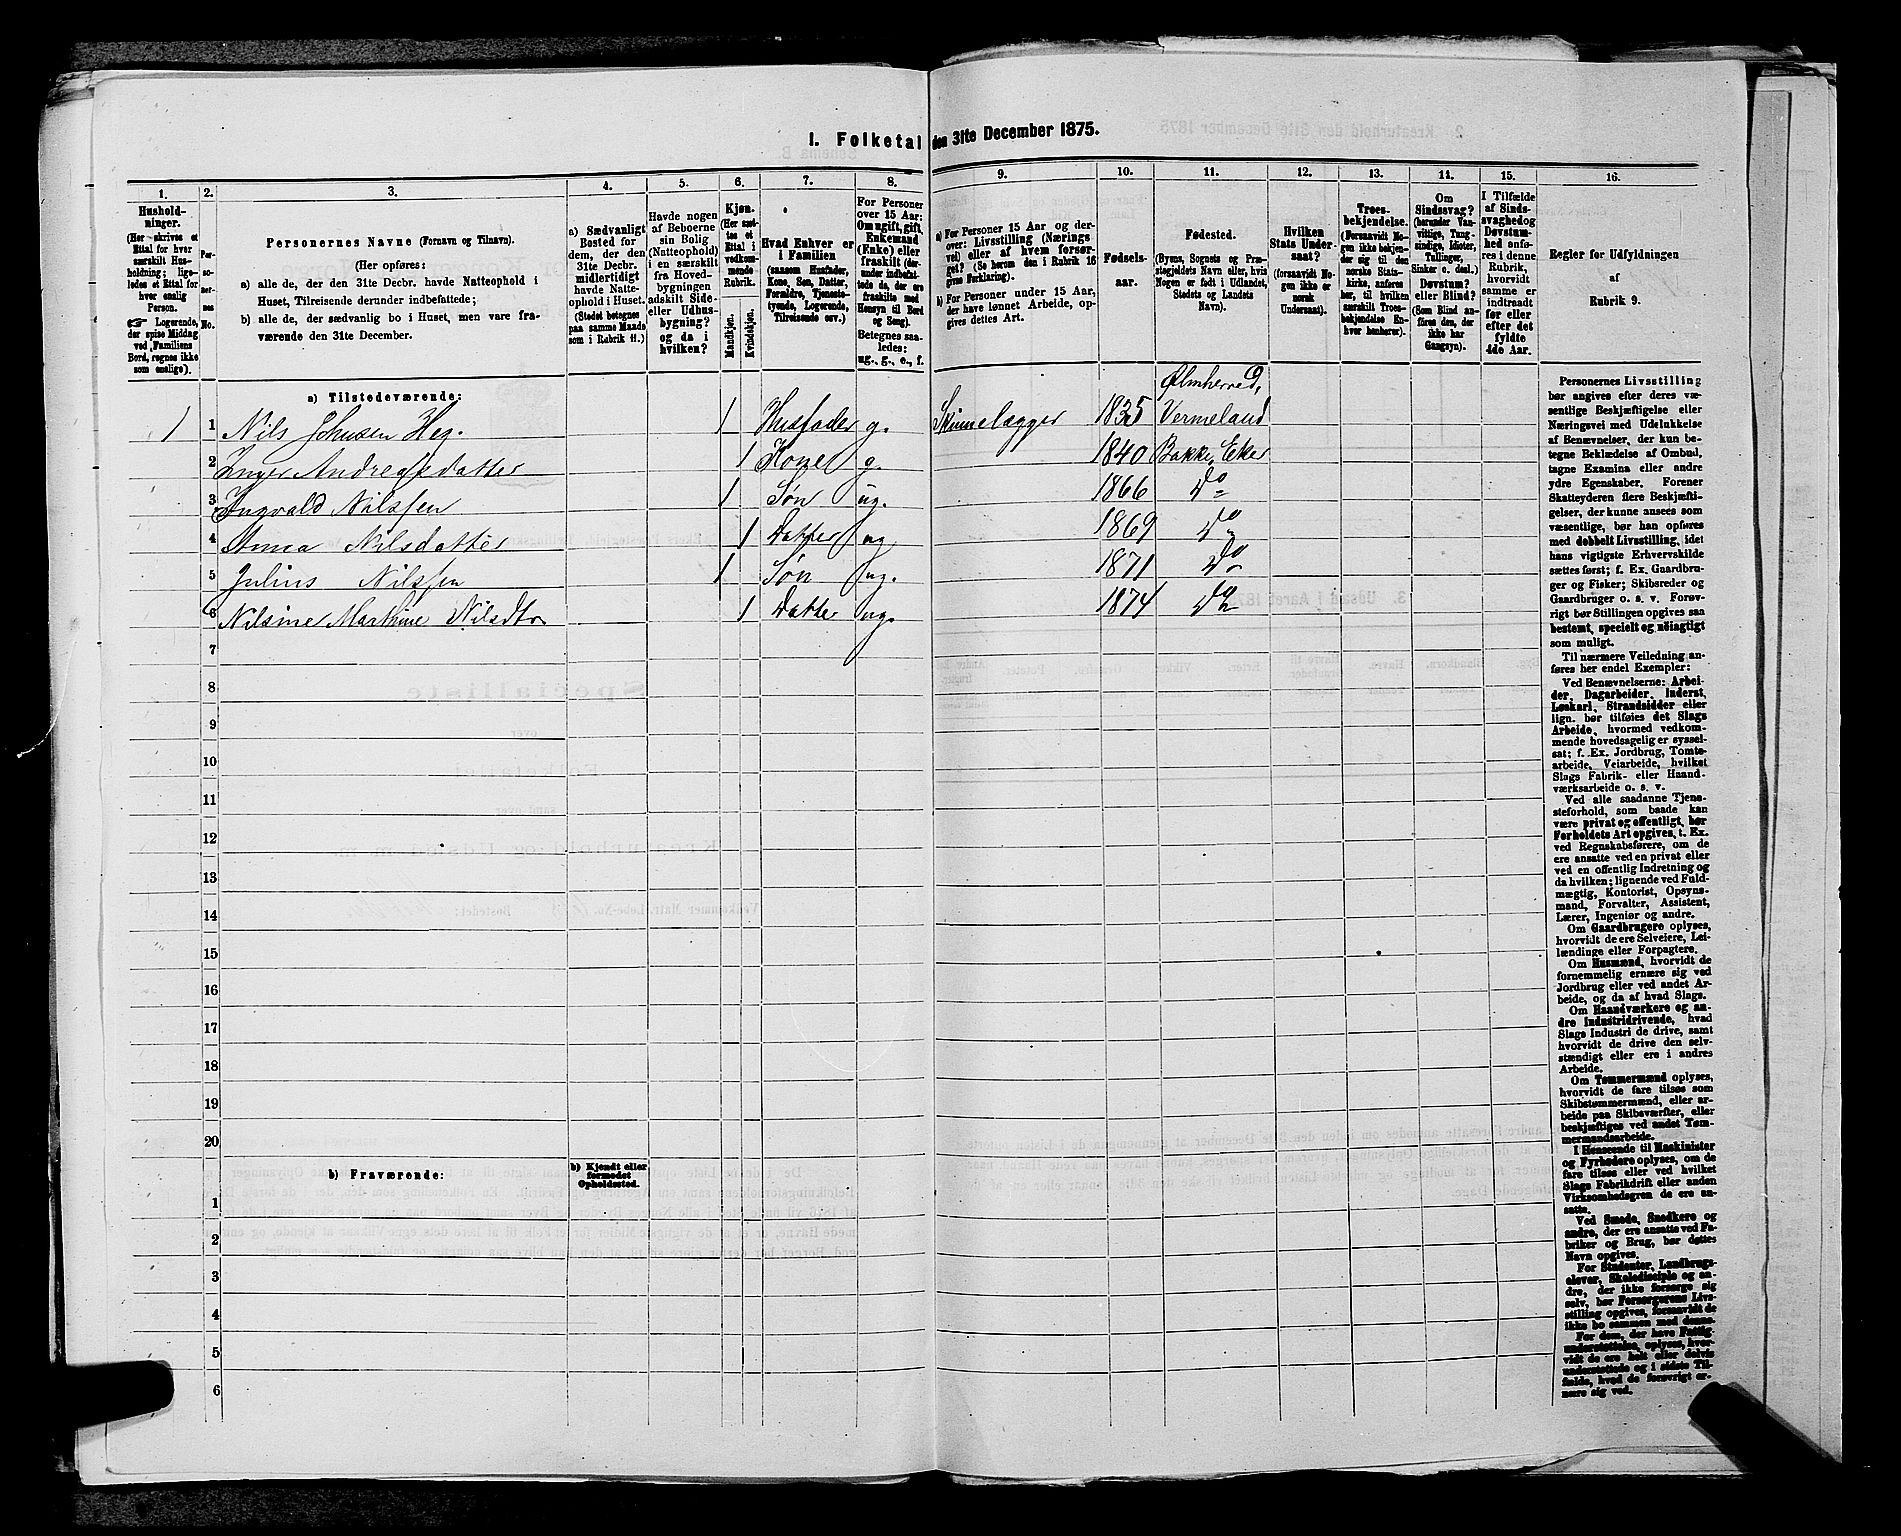 I. Folketal den 31te December 1875.
1. 2. 3. 4. 5. 6. 7. 8. 9. 10. 11. 12. 13. 14. 15. 16.
Hushold-
ninger.
(Her skrives et
Ettal for hver
særskilt Hus-
holdning; lige-
ledes et Ettal for
hver enslig
Person.
☞ Logerende,
der spise Middag
ved Familiens
Bord, regnes ikke
som enslige).
Per-
so-
ner-
nes
No.
Personernes Navne (Fornavn og Tilnavn).
(Her opføres:
a) alle de, der den 31te Decbr. havde Natteophold i
Huset, Tilreisende derunder indbefattede;
b) alle de, der sædvanlig bo i Huset, men vare fra-
værende den 31te December.
a) Sædvanligt
Bosted for
dem, der den
31te Decbr.
midlertidigt
havde Natte-
ophold i Huset.
(Stedet betegnes
paa samme Maade
som i Rubrik 11.)
Havde nogen
af Beboerne
sin Bolig
(Natteophold)
i en særskilt
fra Hoved-
bygningen
adskilt Side-
eller Udhus-
bygning?
og da i
hvilken?
Kjøn.
(Her sæt-
tes et
Ettal i
vedkom-
mende
Rubrik.
Mandkjøn.
Kvindekjøn.
Hvad Enhver er
i Familien
(saasom Husfader,
Kone, Søn, Datter,
Forældre, Tjeneste-
tyende, Logerende,
Tilreisende osv.)
For Personer
over 15 Aar:
Om ugift, gift,
Enkemand
(Enke) eller
fraskilt (der-
under indbefat-
tede de, der ere
fraskilte med
Hensyn til Bord
og Seng).
Betegnes saa-
ledes:
ug., g., e., f.
a) For Personer 15 Aar og der-
over: Livsstilling (Nærings
vei) eller af hvem forsør-
get? (Se herom den i Rubrik 16
givne Forklaring).
b) For Personer under 15 Aar,
der have lønnet Arbeide, op-
gives dettes Art.
Fødsels-
aar.
Fødested.
(Byens, Sognets og Præ-
stegjeldets Navn eller, hvis
Nogen er født i Udlandet,
Stedets og Landets
Navn).
Hvilken
Stats Under-
saat?
(forsaavidt No-
gen ikke er
norsk
Undersaat).
Troes-
bekjendelse.
(Forsaavidt No-
gen ikke bekjen-
der sig til den
norske Stats-
kirke, anføres
her, til hvilken
særskilt Troes-
bekjendelse En-
hver henhører).
Om
Sindssvag?
(herunder Van-
vittige, Tung-
sindige, Idioter,
Tullinger,
Sinker o. desl.)
Døvstum?
eller Blind?
(Som Blind an-
føres den, der
ikke har
Gangsyn).
I Tilfælde
af Sinds-
svaghed og
Døvstum-
hed anfø-
res i denne
Rubrik,
hvorvidt
samme er
indtraadt
før eller
efter det
fyldte
4de Aar.
Regler for Udfyldningen
af
Rubrik 9.
a) Tilstedeværende:
1 1 Nils Johnsen Heg. 1 Husfader g. Skinnelægger 1835 Ølmherred, Vermeland
2 Inger Andreasdatter 1 Kone g. 1840 Bakke, Eker
3 Ingvald Nilssen 1 Søn ug. 1866 Do
4 Anna Nilsdatter 1 Datter ug. 1869 Do
5 Julius Nilssen 1 Søn ug. 1871 Do
6 Nilsine Marthine Nilsdtr. 1 Datter ug. 1874 Do
7
8
9
10
11
12
13
14
15
16
17
18
19
20
b) Fraværende:
b) Kjendt eller
formodet
Opholdssted.
1
2
3
4
5
6
Personernes Livsstilling
bør angives efter deres væ-
sentlige Beskjæftigelse eller
Næringsvei med Udelukkelse
af Benævnelser, der kun be-
tegne Beklædelse af Ombud,
tagne Examina eller andre
ydre Egenskaber. Forener
Skatteyderen flere Beskjæfti-
gelser, der kunne ansees som
væsentlige, bør han opføres
med dobbelt Livsstilling, idet
hans vigtigste Erhvervskilde
sættes først; f. Ex. Gaardbru-
ger og Fisker; Skibsreder og
Gaardbruger o. s. v. Forøv-
rigt bør Stillingen opgives saa
bestemt, specielt og nøiagtigt
som muligt.
Til nærmere Veiledning an-
føres her endel Exempler:
Ved Benævnelserne: Arbei-
der, Dagarbeider, Inderst,
Løskarl, Strandsidder eller
lign. bør tilføies det Slags
Arbeide, hvormed vedkom-
mende hovedsagelig er syssel-
sat; f. Ex. Jordbrug, Tomte-
arbeide, Veiarbeide, hvilket
Slags Fabrik- eller Haand-
værksarbeide o. s. v.
Ved alle saadanne Tjene-
steforhold, som baade kan
være privat og offentligt, bør
Forholdets Art opgives, t. Ex.
ved Regnskabsførere, om de
ere ansatte ved en privat eller
ved en offentlig Indretning og
da hvilken; lignende ved Fuld-
mægtig, Kontorist, Opsyns-
mand, Forvalter, Assistent,
Lærer, Ingeniør og andre.
Om Gaardbrugere oplyses,
hvorvidt de ere Selveiere, Lei-
lændinge eller Forpagtere.
Om Husmænd, hvorvidt de
fornemmelig ernære sig ved
Jordbrug eller ved andet Ar-
beide, og da af hvad Slags.
Om Haandværkere og an-
dre Industridrivende, hvad
Slags Industri de drive, samt
hvorvidt de drive den selv-
stændigt eller ere i andres
Arbeide.
Om Tømmermænd oplyses,
hvorvidt de fare tilsøs som
Skibstømmermænd, eller ar-
beide paa Skibsværfter, eller
beskjæftiges ved andet Tøm-
mermandsarbeide.
I Henseende til Maskinister
og Fyrbødere oplyses, om de
fare tilsøs eller ved hvilket
Slags Fabrikdrift eller anden
Virksomhedsgren de ere an-
satte.
Ved Smede, Snedkere og
andre, der ere ansatte ved Fa-
briker og Brug, bør dettes
Navn opgives.
For Studenter, Landbrugs-
elever, Skoledisciple og an-
dre, der ikke forsørge sig
selv, bør Forsørgerens Livs-
stilling opgives, forsaavidt de
ikke bo sammen med denne.
For dem, der have Fattig-
understøttelse, oplyses, hvor-
vidt de ere helt eller delvis
understøttede og i sidste Til-
fælde, hvad de forøvrigt er-
nære sig ved.